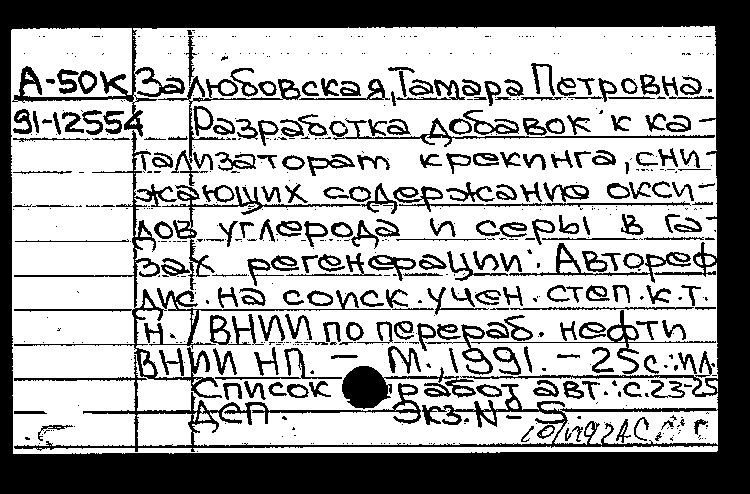 А-50К Залюбовская, Тамара Петровна.
91-12554 Разработка добавок к ка-
тализаторам крекинга, сни-
жающих содержание окси-
дов углерода и серы в га-
зах регенерации: Автореф
дис. на соиск. учен. степ. к.т.
н. / ВНИИ по перераб. нефти
ВНИИ НП. — М., 1991. — 25 с.: ил.
Список работ авт.: с. 23-25
ДСП. Экз. № 5